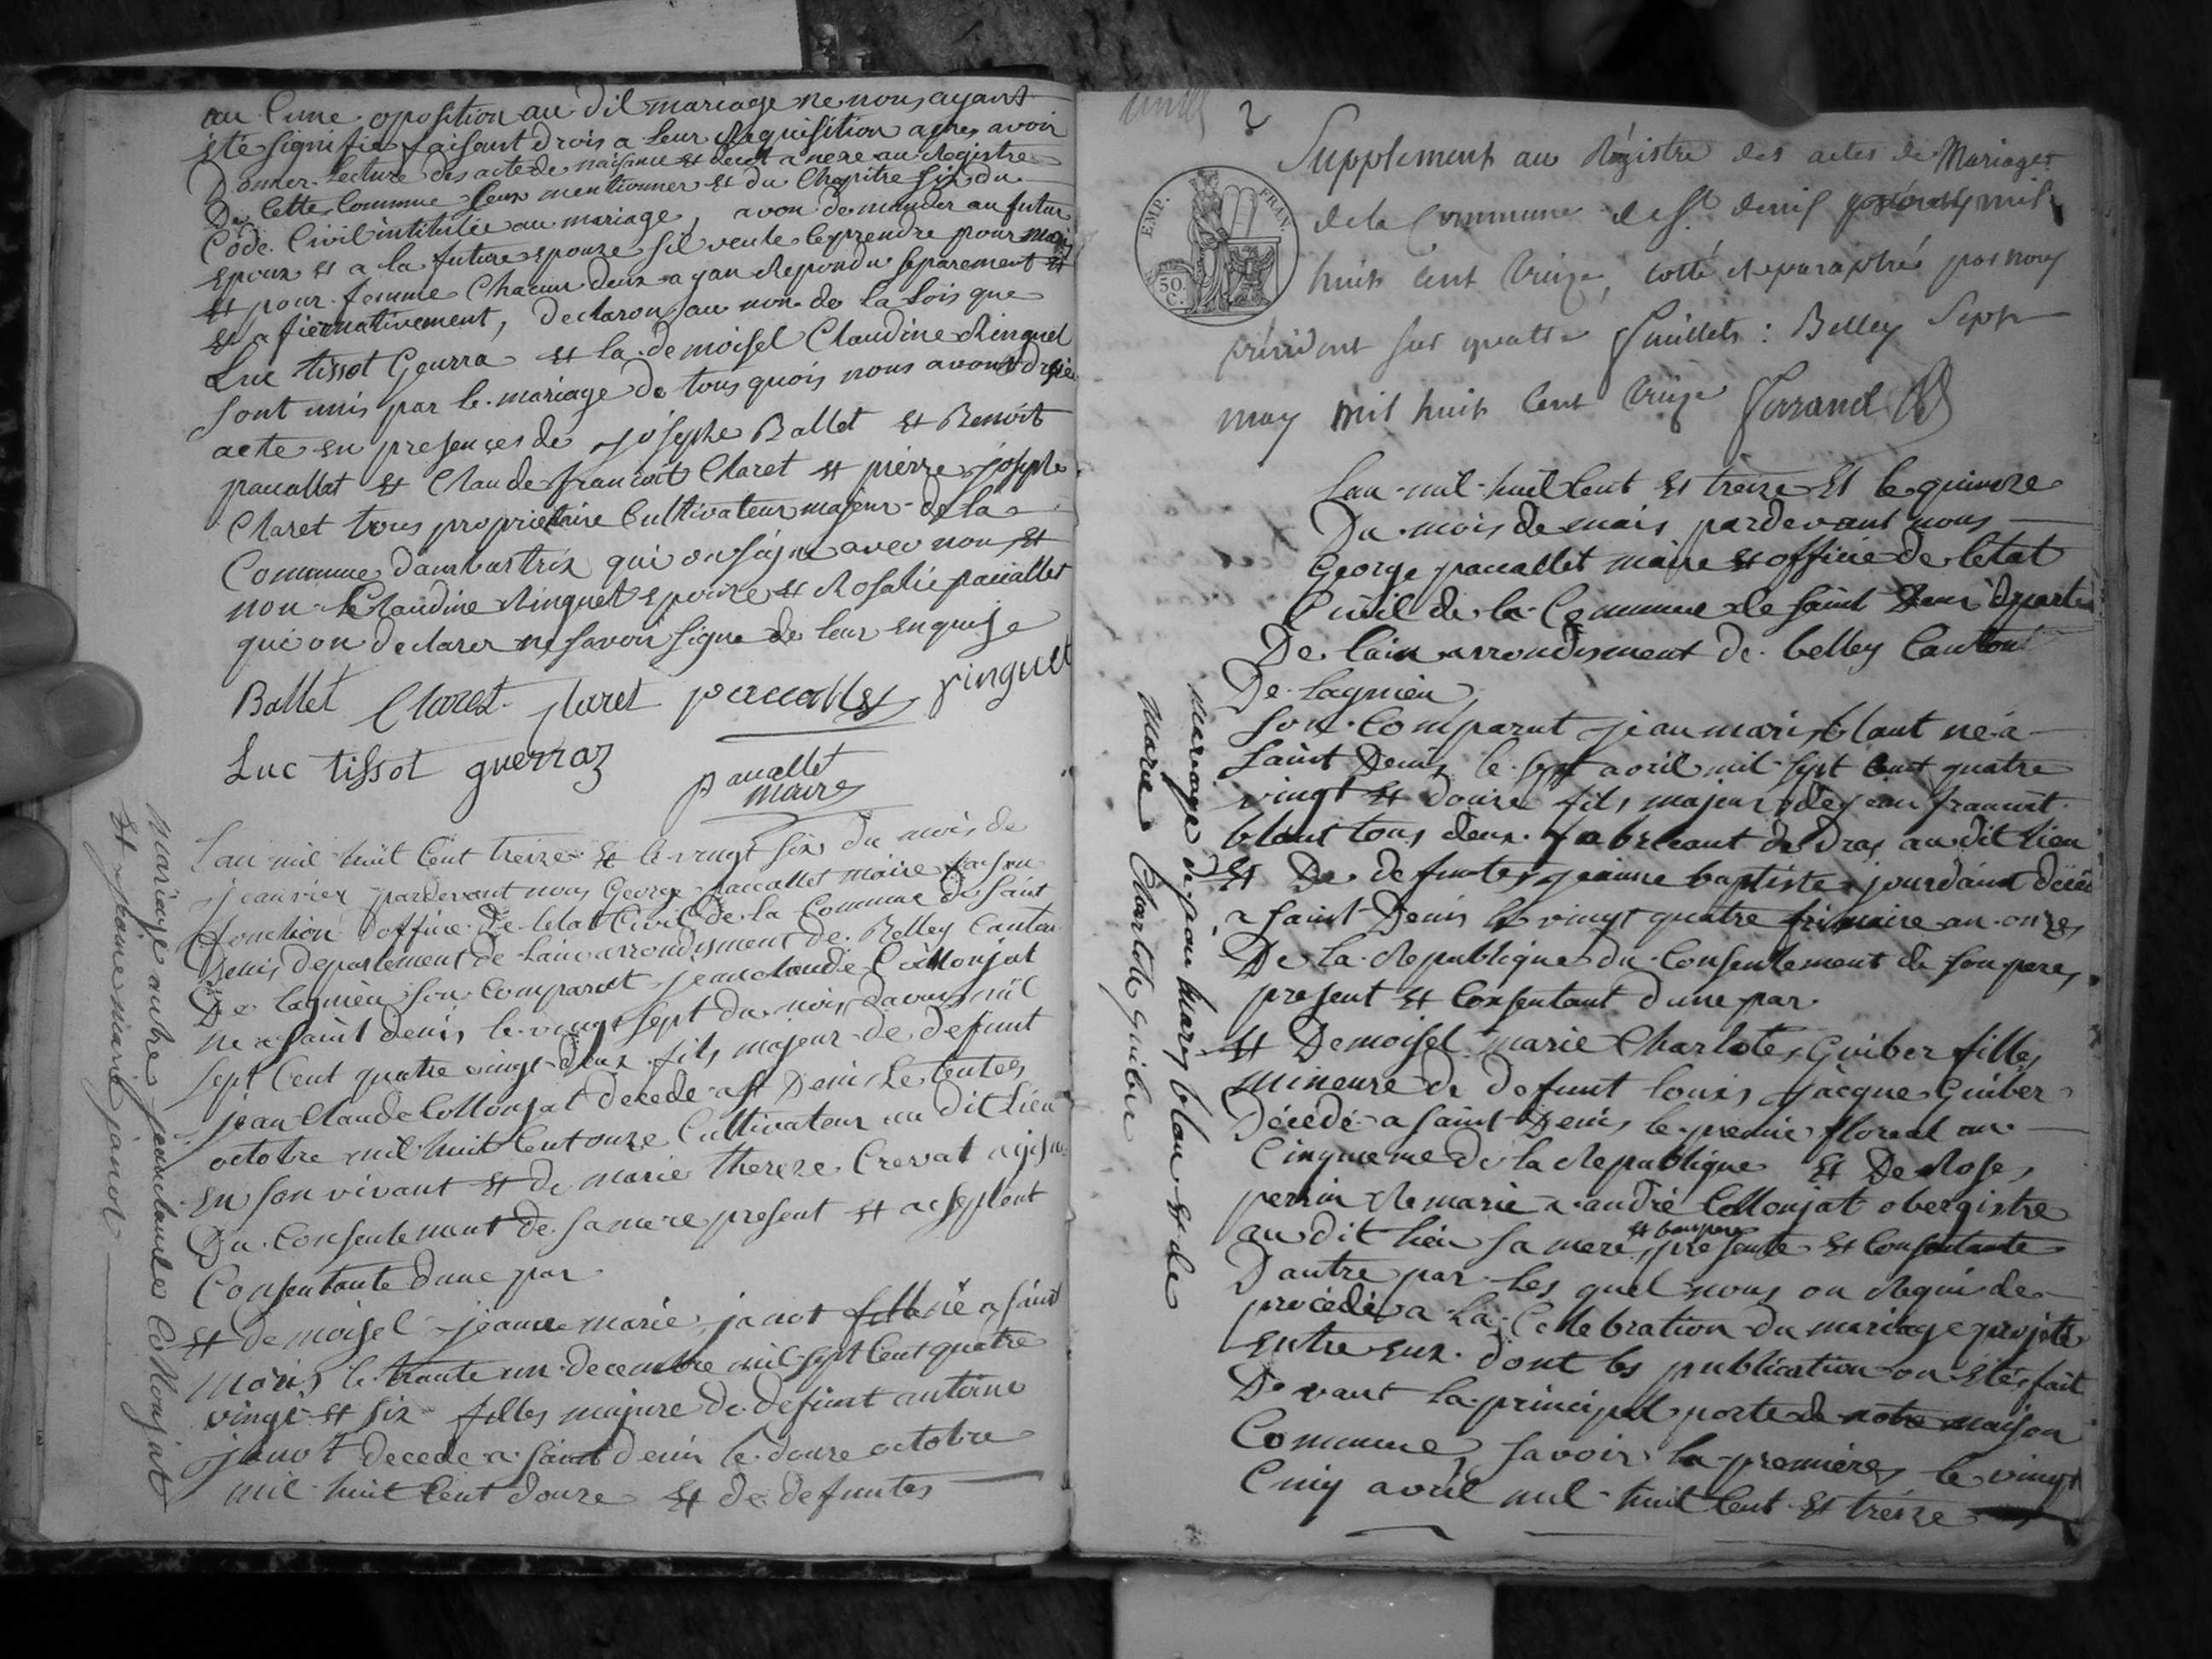 au cune oposition au dit mariage ne nous ayant
été signifie faisant drois a leur Requisition apres avoir
Donner lecture des acte de naisance et deces a nexe au Registre
De Cette Commune Ceux mentionner et du Chapitre six du
Code Civil intitulée au mariage, avon demander au futur
epoux et a la future epouze sil veule le prendre pour mari
et pour femme Chacun deux a yan Repondu separement et
et a fiermativement, Declaron au non de la Lois que
Luc tissot Geurra et la demoisel Claudine Ringuet
sont unis par le mariage de tous quois nous avons dresse
acte en presences de josephe Ballet et Benoit
paucallat et Claude francoit Claret et pierre josephe
Claret tous proprietaire Cultivateur majeur de la
Commune dambutrix qui on signe avec nous et
non Claudine Ringuet epouze et Rosalie paucallet
qui on declarer ne savoir signe de leur enquise
Ballet Claret Claret paucallet ringuet
Luc tissot guerraz
paucallet
maire
Lan mil huit Cent treize et le vingt six du mois de
jeanvier pardevant nous George paucallet maire faison
fonction doffice de letat Civil de la Commune de Saint
Denis departement de Lain arrondisment de Belley Canton
De lagnieu son Comparut jean claude Collonjat
ne a saint denis le vingt sept du mois daoust mil
sept Cent quatre vingt deux fils majeur de defunt
jean Claude Collonjat decede a st Denis le
octobre mil huit Cent onze Cultivateur au dit Lieu
en son vivant et de marie thereze Crevat agisan
Du Consentemant de sa mere present et acseptent
Consentante dune par
et demoisel jeanne marie janot fille né a saint
Moris le trante un decembre mil sept Cent quatre
vingt et six filles majure de defunt antoine
janot decede a saint denis le douze octobre
mil huit Cent douze et de defuntes
Mariage autre jeanclaude Collonjat
et jeanne marie janot
2
Supplement au Régistre des actes de Mariages
de la Commune de St denis pour mil
huit cent treize, cotté et paraphé par nous
président sur quatre feuillets: Belley Sept
may mil huit Cent treize Ferrand
EMP. FRAN.
50 C.
Lan mil huit Cent et treize et le quinze
Du mois de mais pardevant nous
George paucallet maire et officié de letat
Civil de la Commune de saint Denis departem
De lain arrondisment de belley Canton
De lagnieu,
son Comparut jean marie blant né a
saint Denis le sept avril mil sept Cent quatre
vingt et douze fils majeur de jean francoit
blant tous deux fabricant de dras au dit lieu
et De defuntes jeanne baptiste jourdaint decedé
a saint Denis le vingt quatre frimaire an onze
De la Republique du Consentement de son pere
present et Consentant dune par
et Demoisel marie Charlote Guiber filles
mineure de defunt louis jacque Guiber
Décédé a saint Denis le premie floreal an
Cinquieme de la Republique et De Rose
perrin Remarie a andré Collonjat obergistre
au dit lieu sa mere et baupere presente et Consentante
Dautre par les quel nous on Requi de
procédér a la Celebration du mariage projeté
entre eux dont les publication on été fait
Devant la principal porte de notre maison
Commune, savoir la premieres le vingt
Cinq avril mil huit Cent et treize
Mariage de jean Marey blan et de
Marie Charlote guiber